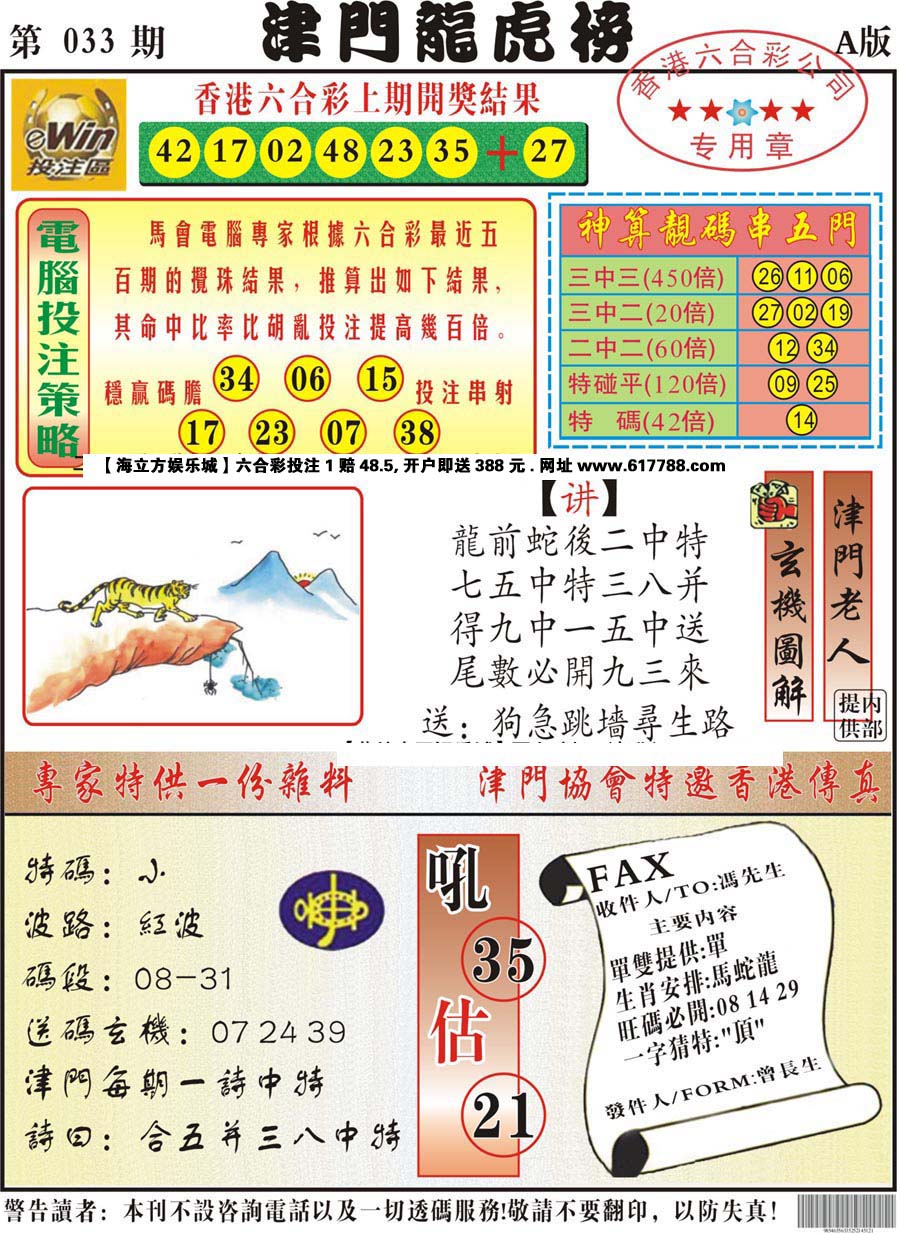 第 033 期
津門龍虎榜
A版
香港六合彩上期開獎結果
42 17 02 48 23 35 + 27
eWin
投注區
香港六合彩公司
★★★★
专用章
電腦投注策略
馬會電腦專家根據六合彩最近五
百期的攪珠結果，推算出如下結果，
其命中比率比胡亂投注提高幾百倍。
穩贏碼膽 34 06 15 投注串射
17 23 07 38
神算靚碼串五門
三中三(450倍) 26 11 06
三中二(20倍) 27 02 19
二中二(60倍) 12 34
特碰平(120倍) 09 25
特 碼(42倍) 14
【海立方娱乐城】六合彩投注1赔48.5,开户即送388元.网址www.617788.com
【讲】
龍前蛇後二中特
七五中特三八并
得九中一五中送
尾數必開九三來
送：狗急跳墙尋生路
玄機圖解
津門老人
内部提供
專家特供一份雜料
津門協會特邀香港傳真
特碼：小
波路：紅波
碼段：08-31
送碼玄機：07 24 39
津門每期一詩中特
詩曰：合五并三八中特
吼
35
估
21
FAX
收件人/TO:馮先生
主要内容
單雙提供:單
生肖安排:馬蛇龍
旺碼必開:08 14 29
一字猜特:"頂"
發件人/FORM:曾長生
警告讀者：本刊不設咨詢電話以及一切透碼服務!敬請不要翻印，以防失真!